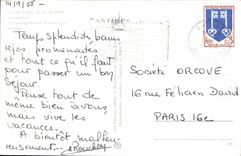 14/9/58-
Temps splendide, bains
Mes promenades
et tout ce qu'il faut
pour passer un bon
séjour.
Pense tout de
même bien à vous
mais vive les
vacances.
A bientôt malheu-
reusement.
Société ORCOVE
16 rue Félicien David
PARIS 16e